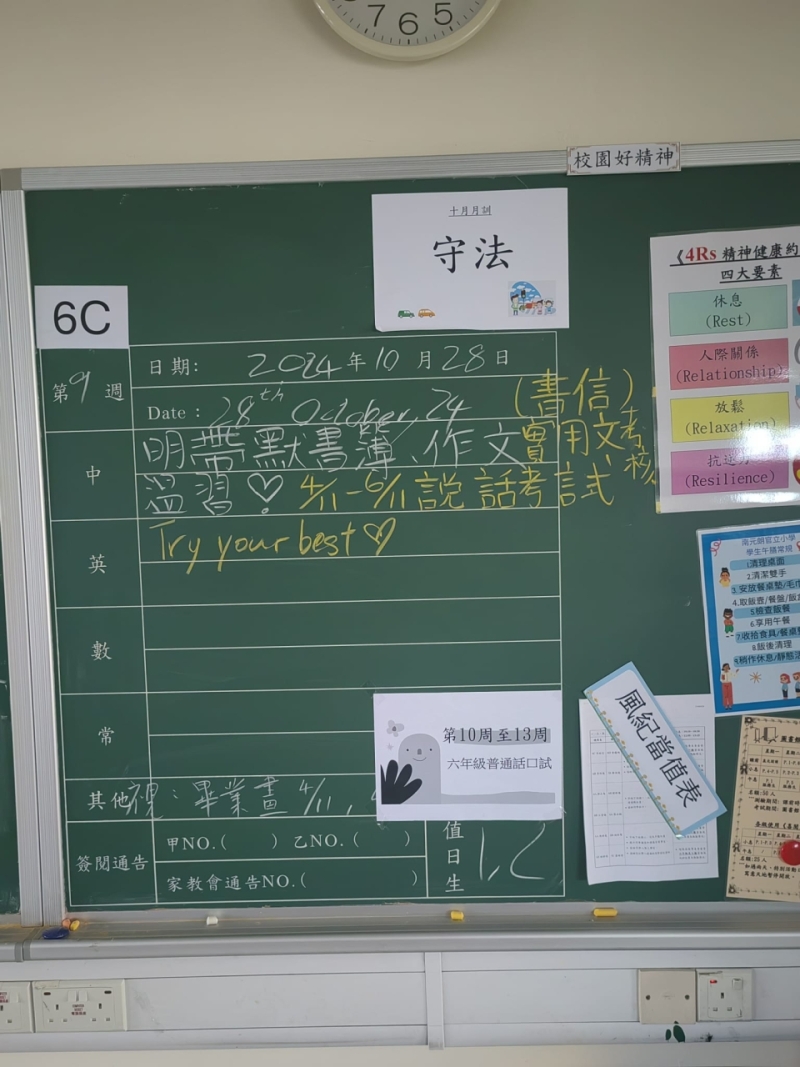 7 6 5
校園好精神
十月月訓
守法
6C
第9週
日期: 2024年10月28日
Date: 28th October, 24
中
明帶默書簿、作文實用文、考核
(書信)
溫習♡ 4/11-6/11 說話考試
英
Try your best♡
數
常
其他
視: 畢業畫 4/11,
第10周至13周
六年級普通話口試
簽閱通告
甲NO.( ) 乙NO.( )
家教會通告NO.( )
值日生
1,2
《4Rs 精神健康約
四大要素
休息
(Rest)
人際關係
(Relationship)
放鬆
(Relaxation)
抗逆力
(Resilience)
南元朗官立小學
學生午膳常規
1清理桌面
2.清潔雙手
3.安放餐桌墊/毛巾
4.取飯壺/餐盤/飯盒
5檢查飯餐
6.享用午餐
7.收拾食具/餐桌墊
8.飯後清理
9.稍作休息/靜態活
風紀當值表